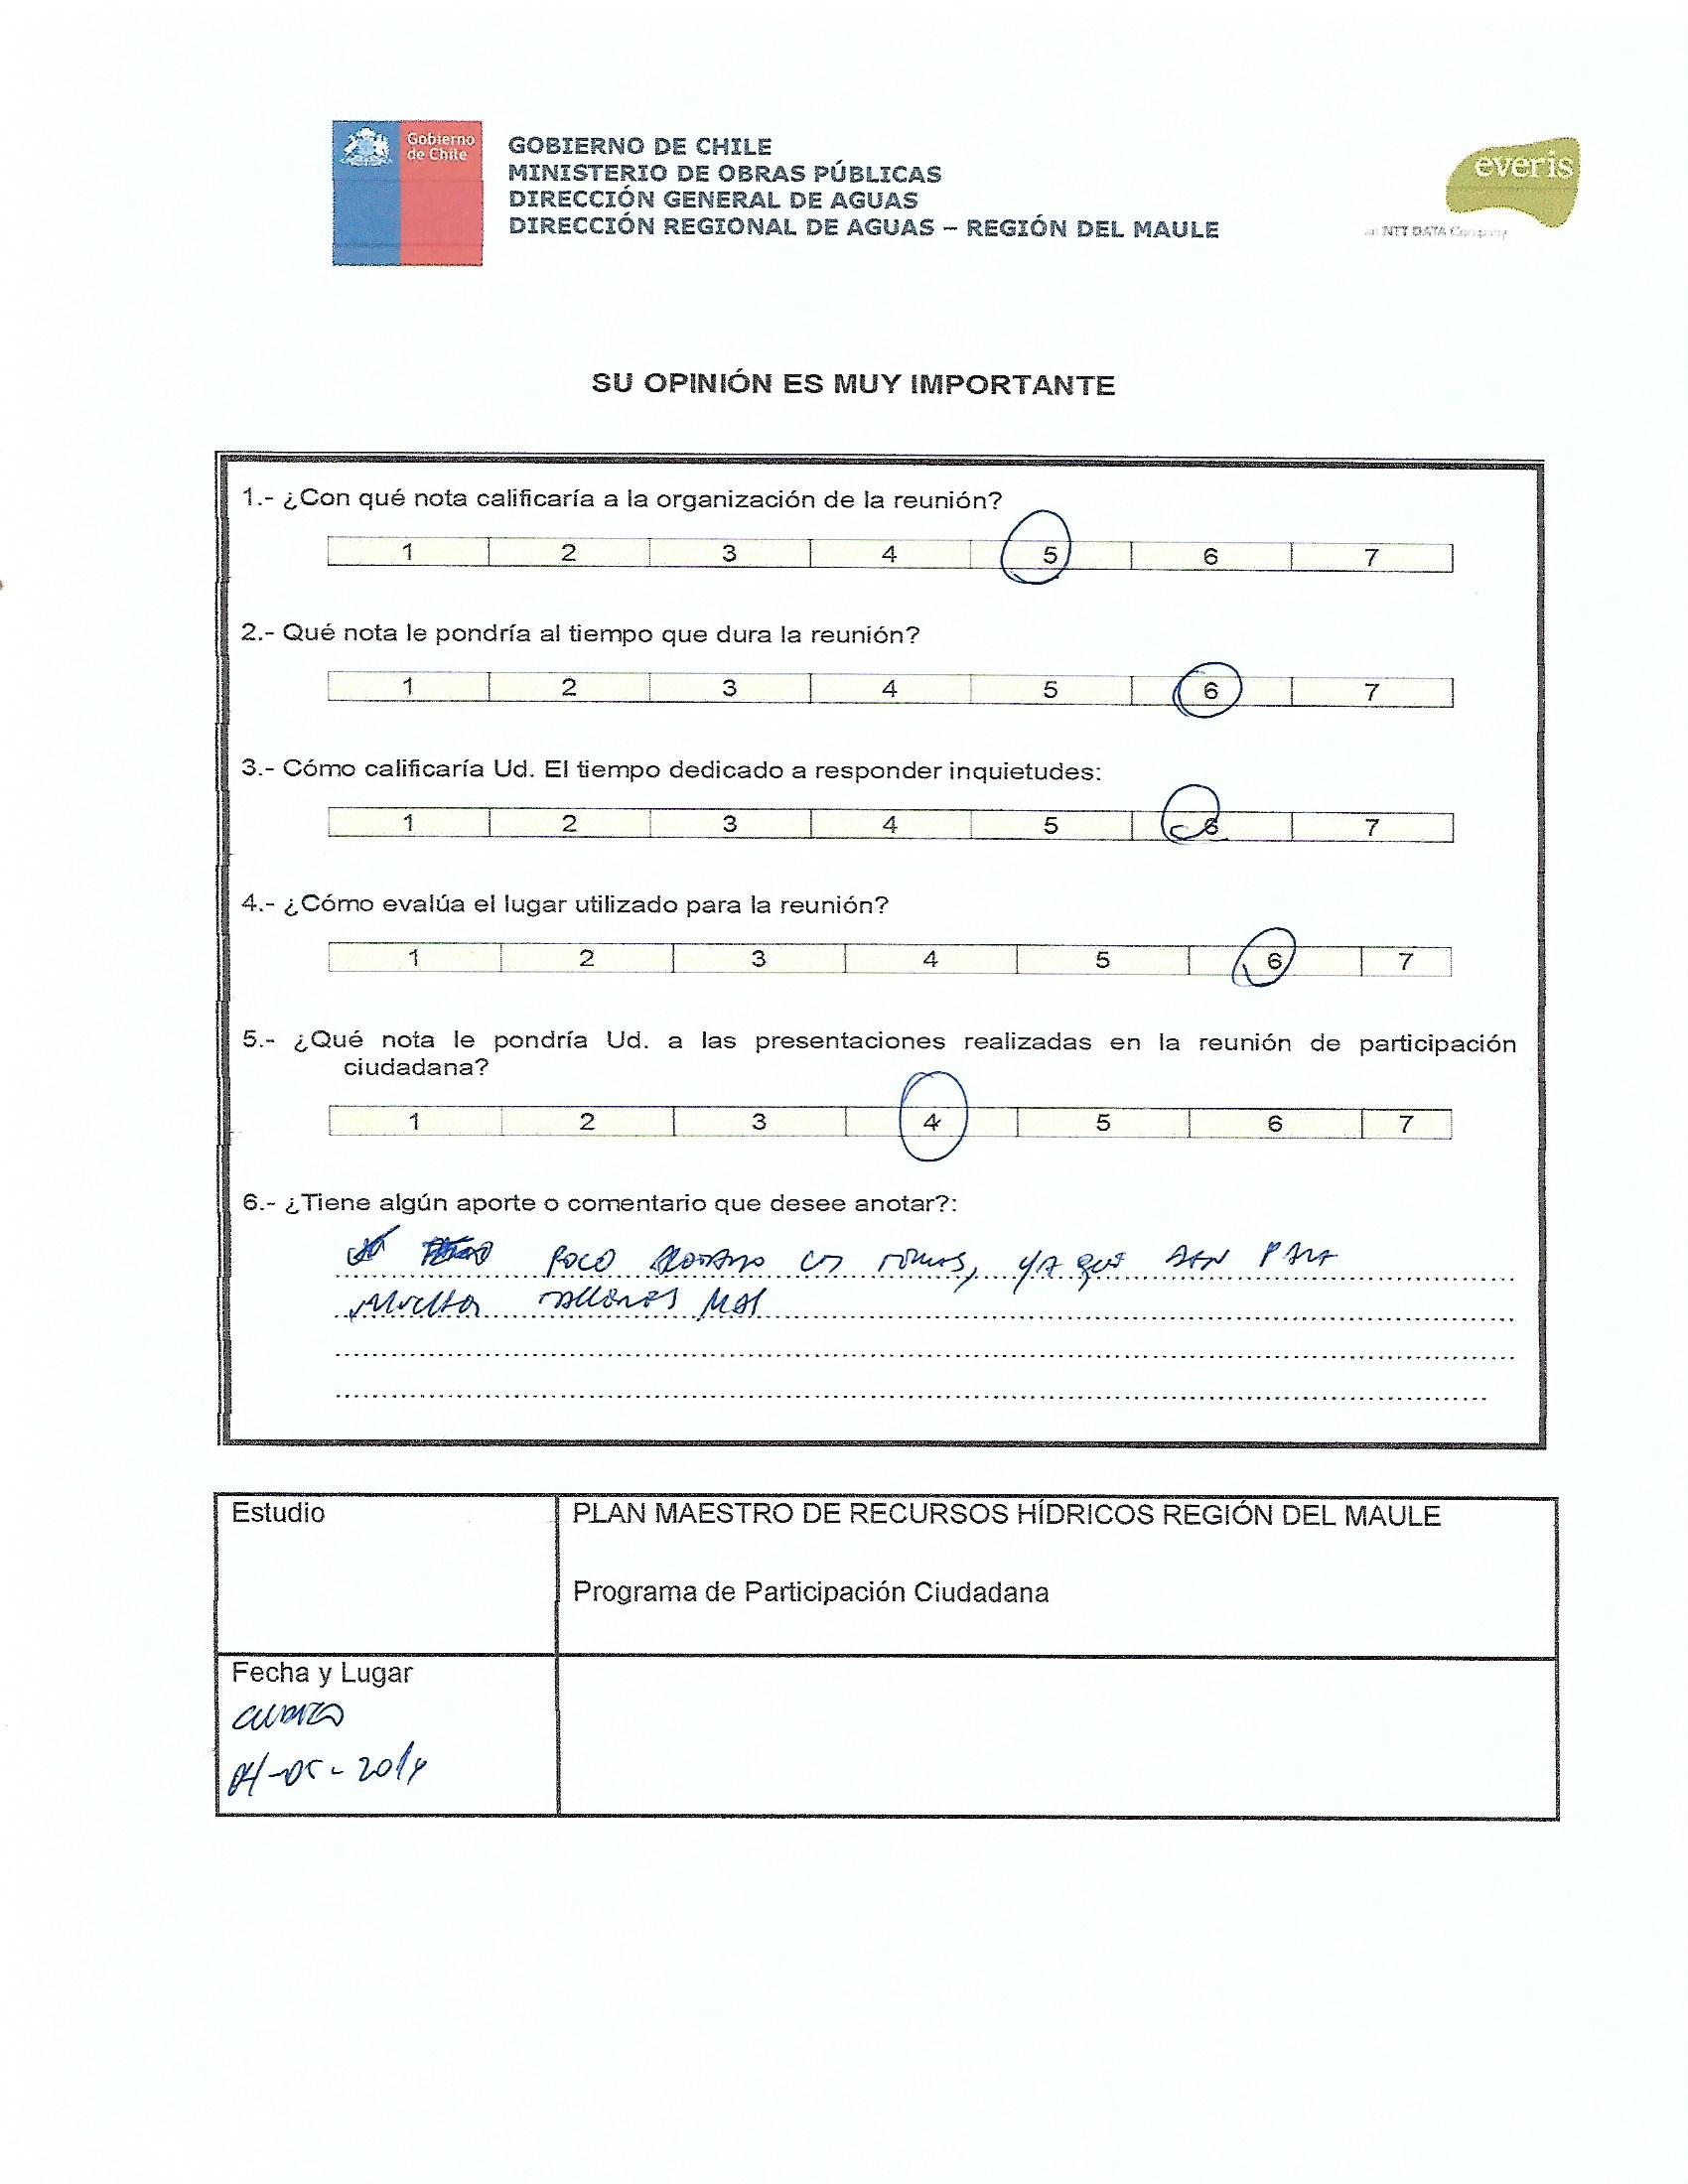 Gobierno
de Chile
GOBIERNO DE CHILE
MINISTERIO DE OBRAS PÚBLICAS
DIRECCIÓN GENERAL DE AGUAS
DIRECCIÓN REGIONAL DE AGUAS – REGIÓN DEL MAULE
everis
an NTT DATA Company
SU OPINIÓN ES MUY IMPORTANTE
1.- ¿Con qué nota calificaría a la organización de la reunión?
1 2 3 4 5 6 7
2.- Qué nota le pondría al tiempo que dura la reunión?
1 2 3 4 5 6 7
3.- Cómo calificaría Ud. El tiempo dedicado a responder inquietudes:
1 2 3 4 5 6 7
4.- ¿Cómo evalúa el lugar utilizado para la reunión?
1 2 3 4 5 6 7
5.- ¿Qué nota le pondría Ud. a las presentaciones realizadas en la reunión de participación
ciudadana?
1 2 3 4 5 6 7
6.- ¿Tiene algún aporte o comentario que desee anotar?:
POCO YA QUE PARA
TALLERES MAS
Estudio
PLAN MAESTRO DE RECURSOS HÍDRICOS REGIÓN DEL MAULE
Programa de Participación Ciudadana
Fecha y Lugar
04-05-2014